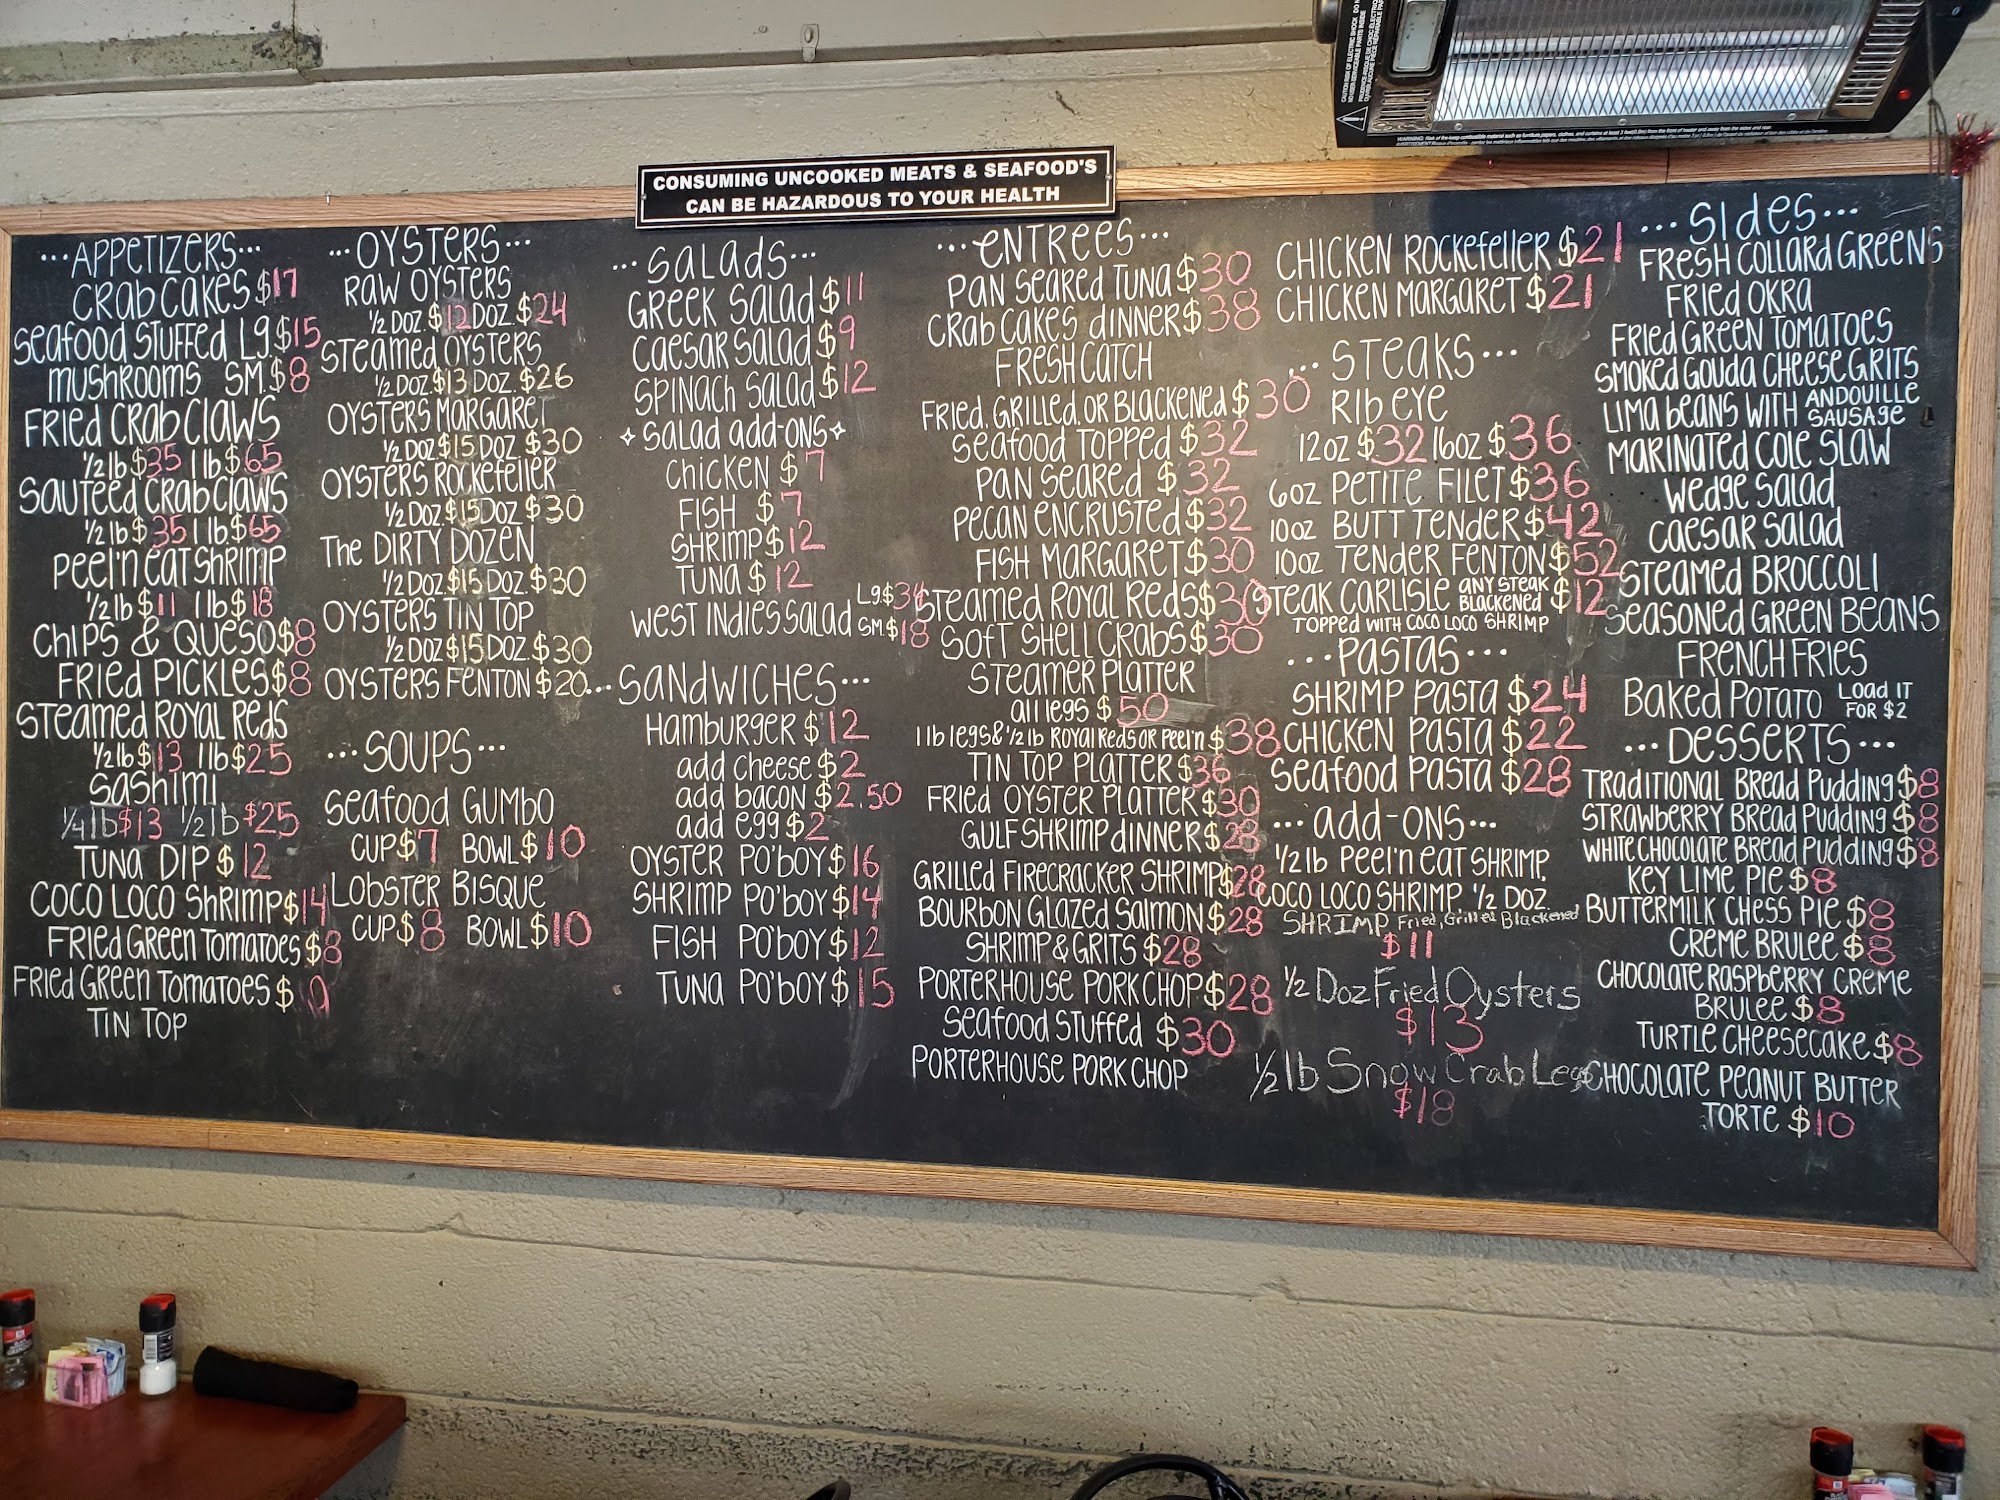 CONSUMING UNCOOKED MEATS & SEAFOOD'S
CAN BE HAZARDOUS TO YOUR HEALTH
...APPETIZERS...
CRAB CAKES $17
SEAFOOD STUFFED LG.$15
MUSHROOMS SM.$8
FRIED CRAB CLAWS
1/2 lb $35 1 lb $65
SAUTEED CRAB CLAWS
1/2 lb $35 1 lb $65
PEEL'N EAT SHRIMP
1/2 lb $11 1 lb $18
CHIPS & QUESO $8
FRIED PICKLES $8
STEAMED ROYAL REDS
1/2 lb $13 1 lb $25
SASHIMI
1/4 lb $13 1/2 lb $25
TUNA DIP $12
COCO LOCO SHRIMP $14
FRIED GREEN TOMATOES $8
FRIED GREEN TOMATOES $
TIN TOP
...OYSTERS...
RAW OYSTERS
1/2 DOZ.$12 DOZ.$24
STEAMED OYSTERS
1/2 DOZ.$13 DOZ.$26
OYSTERS MARGARET
1/2 DOZ $15 DOZ.$30
OYSTERS ROCKEFELLER
1/2 DOZ $15 DOZ $30
THE DIRTY DOZEN
1/2 DOZ.$15 DOZ.$30
OYSTERS TIN TOP
1/2 DOZ $15 DOZ.$30
OYSTERS FENTON $20
...SOUPS...
SEAFOOD GUMBO
CUP $7 BOWL $10
LOBSTER BISQUE
CUP $8 BOWL $10
...SALADS...
GREEK SALAD $11
CAESAR SALAD $9
SPINACH SALAD $12
SALAD ADD-ONS
CHICKEN $7
FISH $7
SHRIMP $12
TUNA $12
WEST INDIES SALAD LG.$34
SM.$18
...SANDWICHES...
HAMBURGER $12
ADD CHEESE $2
ADD BACON $2.50
ADD EGG $2
OYSTER PO'BOY $16
SHRIMP PO'BOY $14
FISH PO'BOY $12
TUNA PO'BOY $15
...ENTREES...
PAN SEARED TUNA $30
CRAB CAKES DINNER $38
FRESH CATCH
FRIED, GRILLED, OR BLACKENED $30
SEAFOOD TOPPED $32
PAN SEARED $32
PECAN ENCRUSTED $32
FISH MARGARET $30
STEAMED ROYAL REDS $30
SOFT SHELL CRABS $30
STEAMER PLATTER
ALL LEGS $50
1 lb LEGS & 1/2 lb ROYAL REDS OR PEEL'N $38
TIN TOP PLATTER $36
FRIED OYSTER PLATTER $30
GULF SHRIMP DINNER $28
GRILLED FIRECRACKER SHRIMP $28
BOURBON GLAZED SALMON $28
SHRIMP & GRITS $28
PORTERHOUSE PORK CHOP $28
SEAFOOD STUFFED $30
PORTERHOUSE PORK CHOP
CHICKEN ROCKEFELLER $21
CHICKEN MARGARET $21
...STEAKS...
RIB EYE
12oz $32 16oz $36
6oz PETITE FILET $36
10oz BUTT TENDER $42
10oz TENDER FENTON $52
STEAK CARLISLE ANY STEAK BLACKENED $12
TOPPED WITH COCO LOCO SHRIMP
...PASTAS...
SHRIMP PASTA $24
CHICKEN PASTA $22
SEAFOOD PASTA $28
...ADD-ONS...
1/2 lb PEEL'N EAT SHRIMP,
COCO LOCO SHRIMP, 1/2 DOZ.
SHRIMP Fried, Grilled Blackened
$11
1/2 Doz Fried Oysters
$13
1/2 lb Snow Crab Legs
$18
...SIDES...
FRESH COLLARD GREENS
FRIED OKRA
FRIED GREEN TOMATOES
SMOKED GOUDA CHEESE GRITS
LIMA BEANS WITH ANDOUILLE SAUSAGE
MARINATED COLE SLAW
WEDGE SALAD
CAESAR SALAD
STEAMED BROCCOLI
SEASONED GREEN BEANS
FRENCH FRIES
BAKED POTATO LOAD IT FOR $2
...DESSERTS...
TRADITIONAL BREAD PUDDING $8
STRAWBERRY BREAD PUDDING $8
WHITE CHOCOLATE BREAD PUDDING $8
KEY LIME PIE $8
BUTTERMILK CHESS PIE $8
CREME BRULEE $8
CHOCOLATE RASPBERRY CREME
BRULEE $8
TURTLE CHEESECAKE $8
CHOCOLATE PEANUT BUTTER
TORTE $10